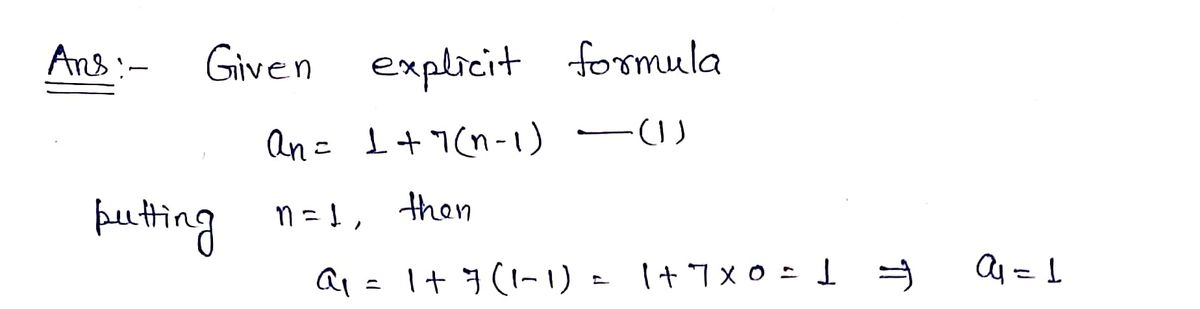 Ans :- Given explicit formula
an = 1 + 7(n-1) —(1)
putting n=1, then
a1 = 1 + 7(1-1) = 1 + 7 x 0 = 1 ⇒ a1 = 1